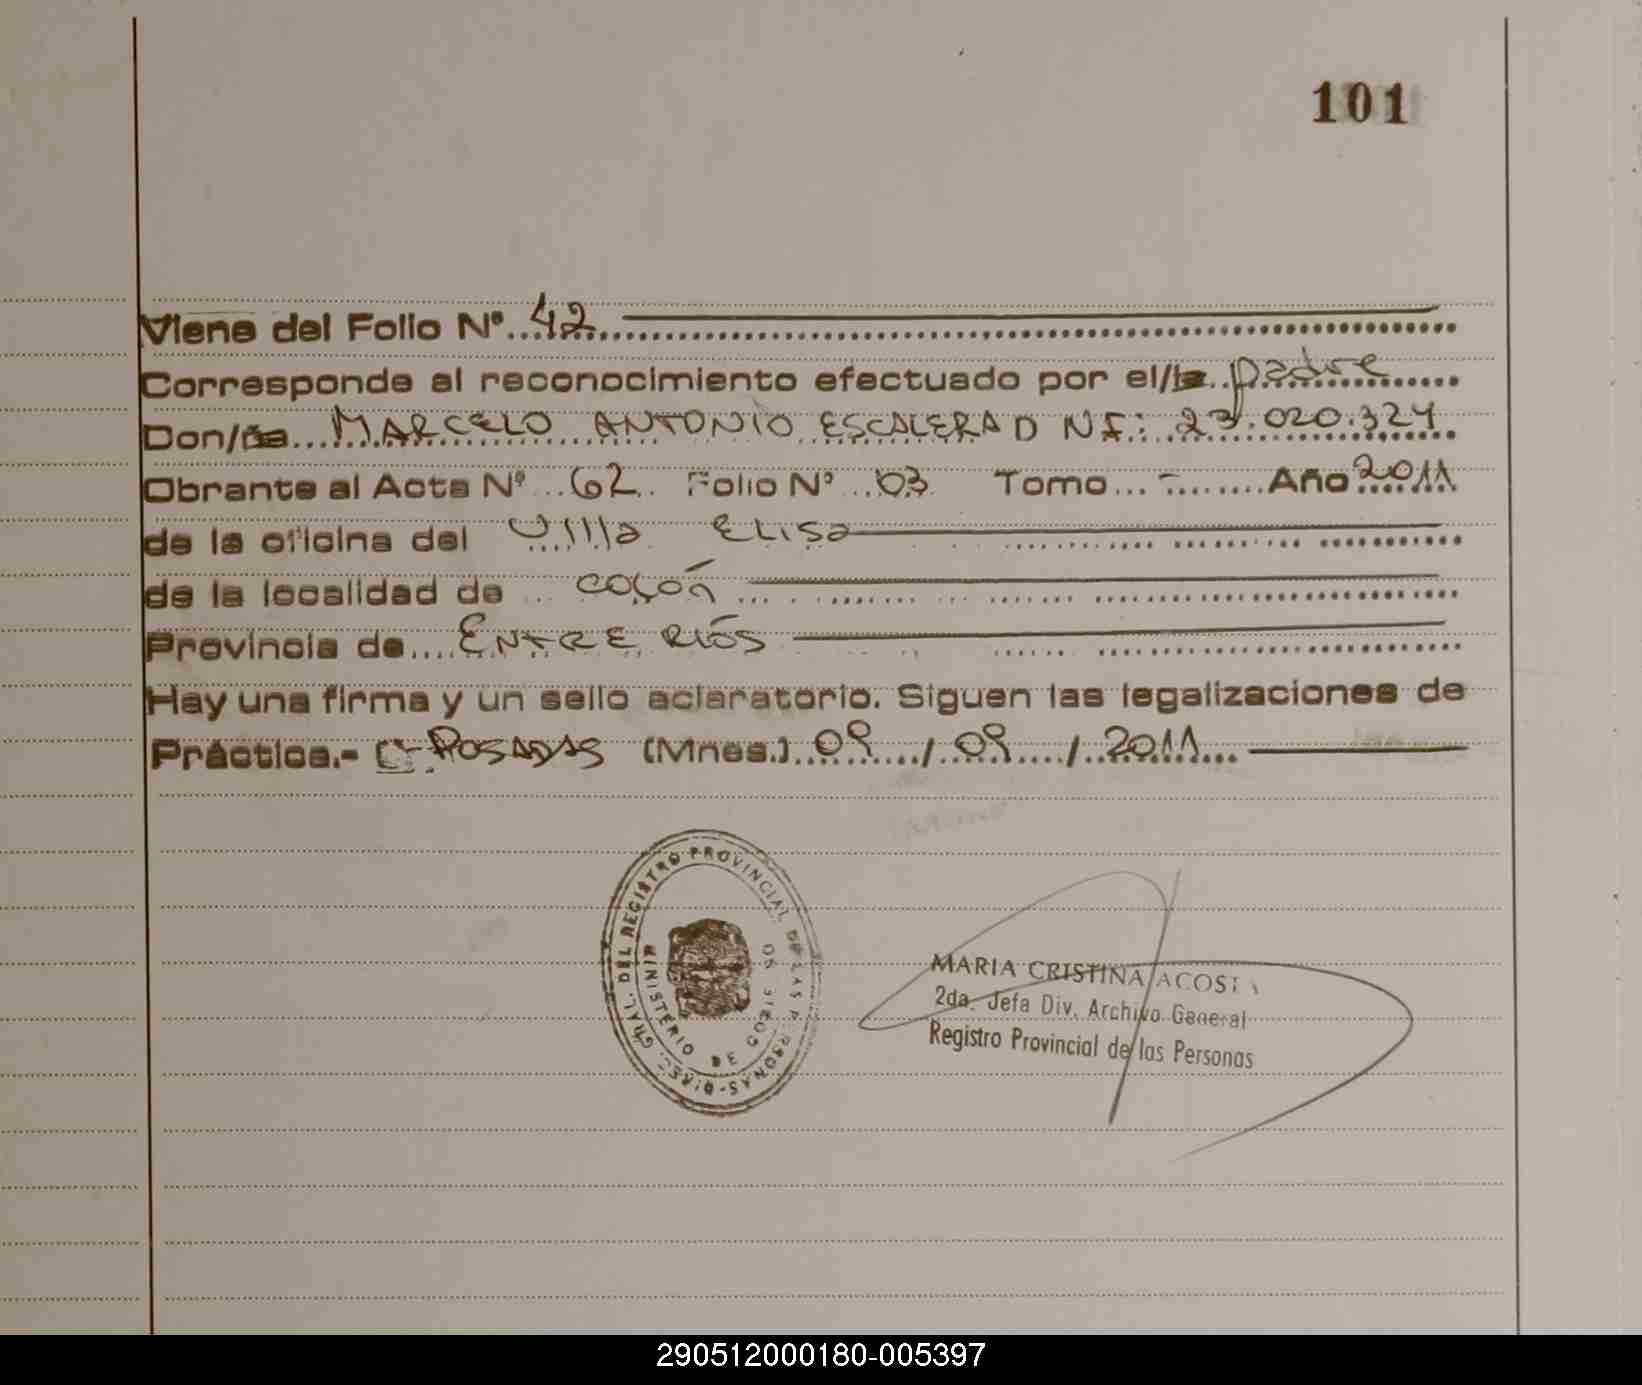 101
Viene del Folio Nº..42
Corresponde al reconocimiento efectuado por el/la..padre
Don/ña....MARCELO ANTONIO ESCALERA D N I: 23.020.324
Obrante al Acta Nº...62.. Folio Nº...03 Tomo...-........Año 2011
de la oficina del Villa Elisa
de la localidad de ... Colón
Provincia de....ENTRE RIÓS
Hay una firma y un sello aclaratorio. Siguen las legalizaciones de
Práctica.- POSADAS (Mnes.) 09 / 09 / 2011
GRAL. DEL REGISTRO PROVINCIAL DE LAS PERSONAS-DIREC.
MINISTERIO DE
MARIA CRISTINA ACOSTA
2da. Jefa Div. Archivo General
Registro Provincial de las Personas
290512000180-005397